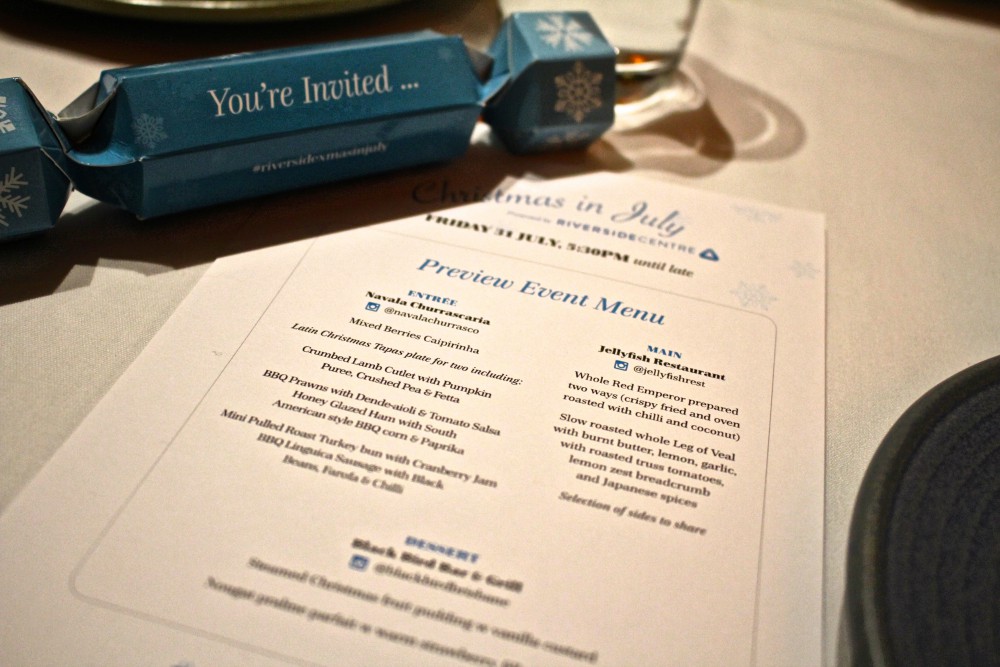 You're Invited ...
#riversidexmasinjuly
Christmas in July
Presented by RIVERSIDECENTRE
FRIDAY 31 JULY, 5:30PM until late
Preview Event Menu
ENTRÉE
Navala Churrascaria
@navalachurrasco
Mixed Berries Caipirinha
Latin Christmas Tapas plate for two including:
Crumbed Lamb Cutlet with Pumpkin
Puree, Crushed Pea & Fetta
BBQ Prawns with Dende-aioli & Tomato Salsa
Honey Glazed Ham with South
American style BBQ corn & Paprika
Mini Pulled Roast Turkey bun with Cranberry Jam
BBQ Linguica Sausage with Black
Beans, Farofa & Chilli
MAIN
Jellyfish Restaurant
@jellyfishrest
Whole Red Emperor prepared
two ways (crispy fried and oven
roasted with chilli and coconut)
Slow roasted whole Leg of Veal
with burnt butter, lemon, garlic,
with roasted truss tomatoes,
lemon zest breadcrumb
and Japanese spices
Selection of sides to share
DESSERT
Black Bird Bar & Grill
@blackbirdbrisbane
Steamed Christmas fruit pudding w vanilla custard
Nougat praline parfait w warm strawberry,